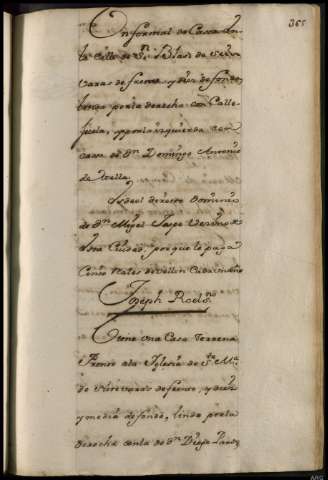 365
Informial de Casa en
la calle de Sn. Blas de siete
varas de frente, y diez de fondo
linda por la derecha con Calle
juela, y por la izquierda con
casas de Dn Domingo Antonio
de Ulloa,
Es del directo Dominio
de Dn Miguel Vecino
Ciudad, porque le paga
Cinco Reales de vellon Cada un año
Joseph Roel no
Tiene una Casa Terrena
Frente a la Iglesia de Sta Ma.
de siete varas de frente, y diez
y media de fondo, linda por la
derecha con la de Dn Diego